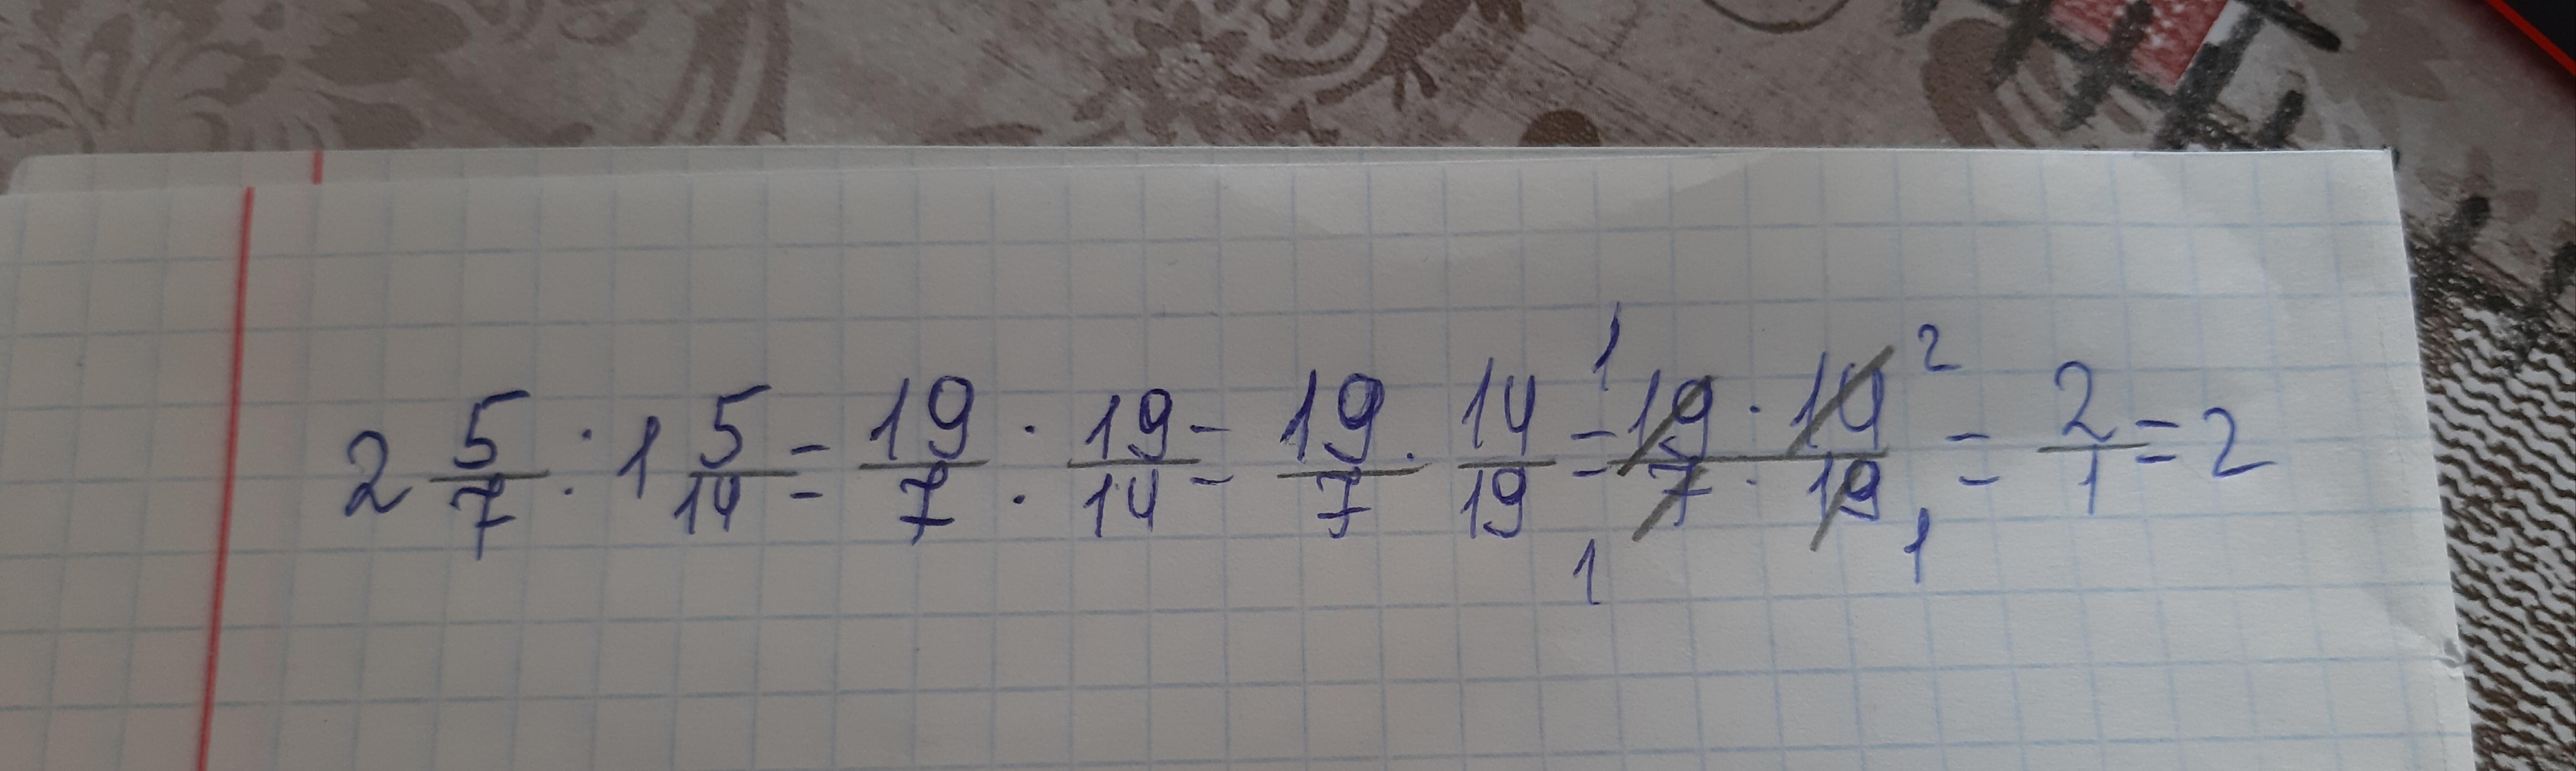 2 5/7 : 1 5/14 = 19/7 : 19/14 = 19/7 · 14/19 = 19 · 14 / 7 · 19 = 2/1 = 2